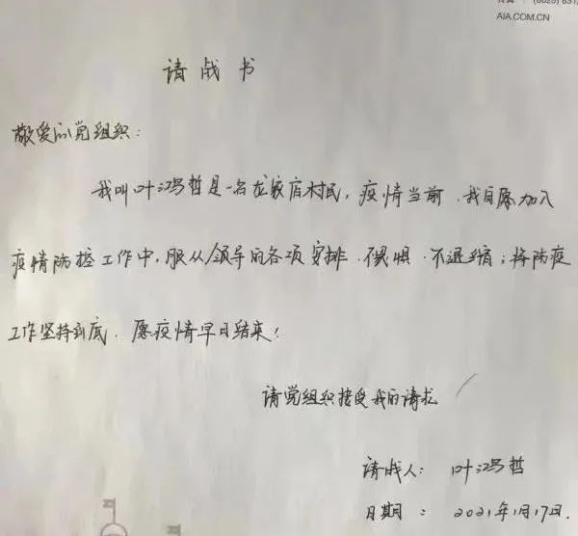 AIA.COM.CN
请战书
敬爱的党组织:
我叫叶鸿哲是一名龙家店村民,疫情当前.我自愿加入
疫情防控工作中,服从领导的各项安排.不畏惧.不退缩;将防疫
工作坚持到底.愿疫情早日结束!
请党组织接受我的请求
请战人: 叶鸿哲
日期: 2021年1月17日.